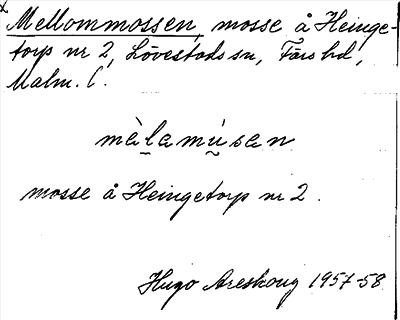 x
Mellommossen, mosse å Heinge-
torp nr 2, Lövestads sn, Färs hd,
Malm. l.
mèlamúsen
mosse å Heingetorp nr 2.
Hugo Areskoug 1957-58